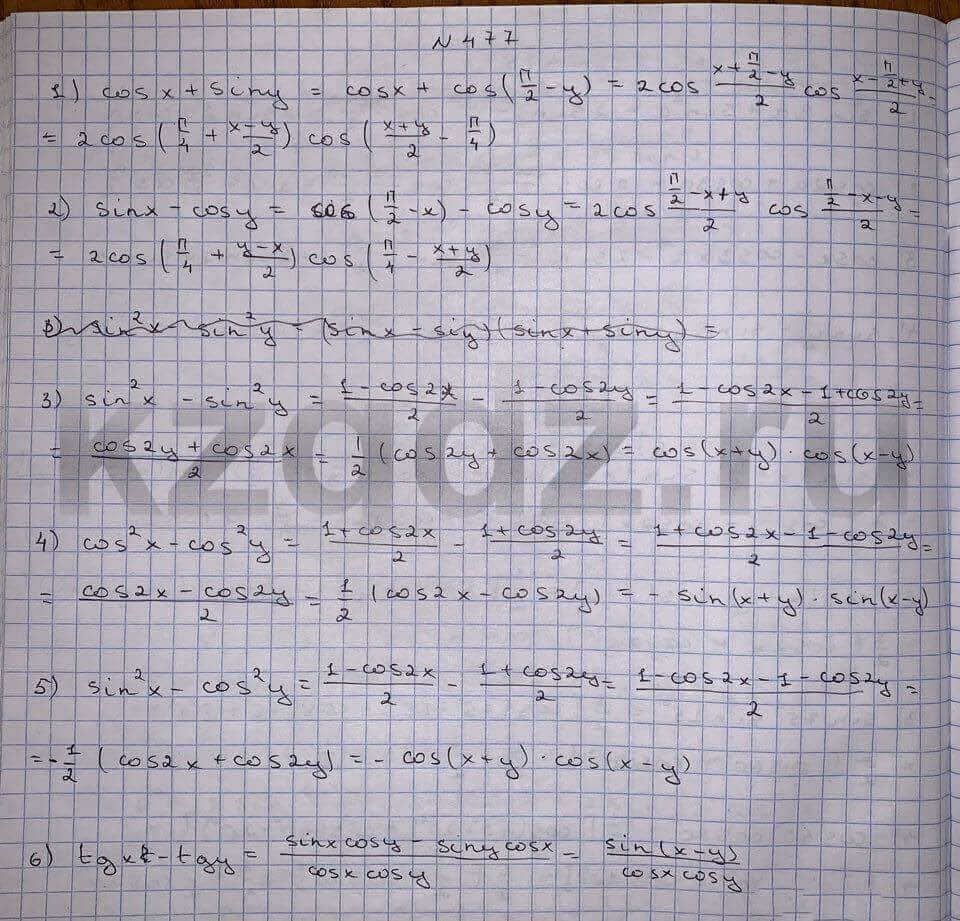 N 477
1) cosx + siny = cosx + cos(π/2 - y) = 2cos (x + π/2 - y)/2 cos (x - π/2 + y)/2 =
= 2cos(π/4 + (x-y)/2) cos((x+y)/2 - π/4)
2) sinx - cosy = cos(π/2 - x) - cosy = 2cos (π/2 - x + y)/2 cos (π/2 - x - y)/2 =
= 2cos(π/4 + (y-x)/2) cos(π/4 - (x+y)/2)
3) sin²x - sin²y = (sinx - siy)(sinx + siny) =
3) sin²x - sin²y = (1 - cos2x)/2 - (1 - cos2y)/2 = (1 - cos2x - 1 + cos2y)/2 =
= (cos2y + cos2x)/2 = 1/2 (cos2y + cos2x) = cos(x+y) · cos(x-y)
kzgdz.ru
4) cos²x - cos²y = (1 + cos2x)/2 - (1 + cos2y)/2 = (1 + cos2x - 1 - cos2y)/2 =
= (cos2x - cos2y)/2 = 1/2 (cos2x - cos2y) = - sin(x+y) · sin(x-y)
5) sin²x - cos²y = (1 - cos2x)/2 - (1 + cos2y)/2 = (1 - cos2x - 1 - cos2y)/2 =
= -1/2 (cos2x + cos2y) = - cos(x+y) · cos(x-y)
6) tgx - tgy = (sinx cosy - siny cosx)/(cosx cosy) = sin(x-y)/(cosx cosy)